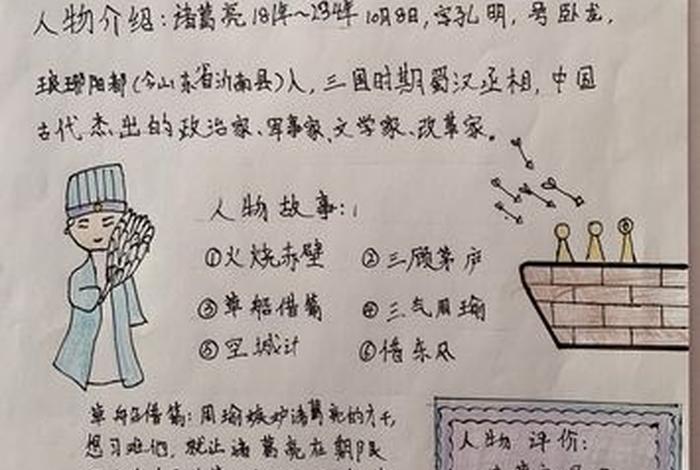 人物介绍:诸葛亮181年~234年10月8日,字孔明,号卧龙,
琅琊阳都(今山东省沂南县)人,三国时期蜀汉丞相,中国
古代杰出的政治家、军事家、文学家、改革家。
人物故事:
①火烧赤壁 ②三顾茅庐
③草船借箭 ④三气周瑜
⑤空城计 ⑥借东风
草船借箭:周瑜嫉妒诸葛亮的才干,
想刁难他,就让诸葛亮在期限
人物评价: